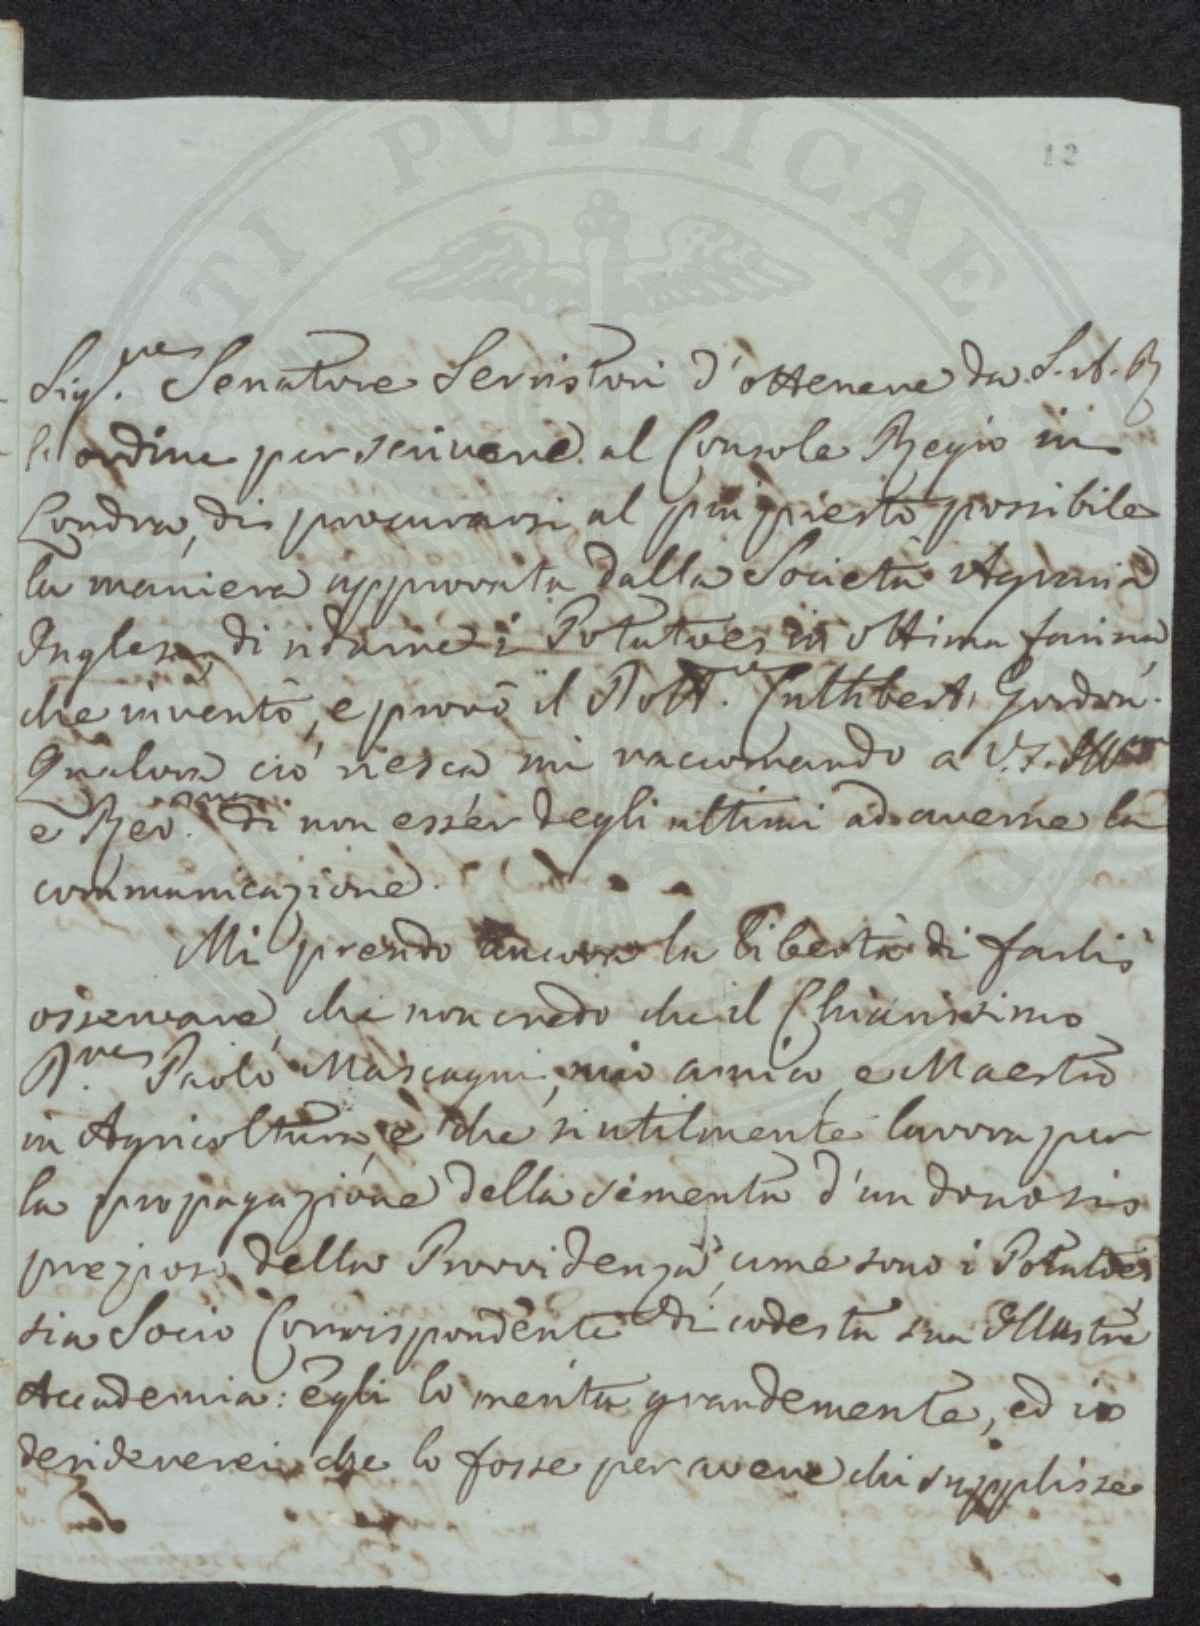 12
Sig.re Senatore Serristori d'ottenere da S. A. R
l'ordine per scrivere al Console Regio in
Londra, di procurarsi al più presto possibile
la maniera approvata dalla Società Agraria
Inglese, di ridurre i Potatoes in ottima farina
che inventò, e provò il Dott.re Cuthbert Gordon.
Qualora ciò riesca mi raccomando a V. S. Ill.ma
e Rev.ma di non esser degli ultimi ad averne la
communicazione.
Mi prendo ancora la libertà di farli
osservare, che non credo che il Chiarissimo
D.re Paolo Mascagni, mio amico e Maestro
in Agricoltura, e che sì utilmente lavora per
la propagazione della sementa d'un dono sì
prezioso della Provvidenza, come sono i Potatoes
sia Socio Corrispondente di codesta sua Illustre
Accademia: Egli lo merita grandemente, ed io
desidererei che lo fosse per avere chi supplisse